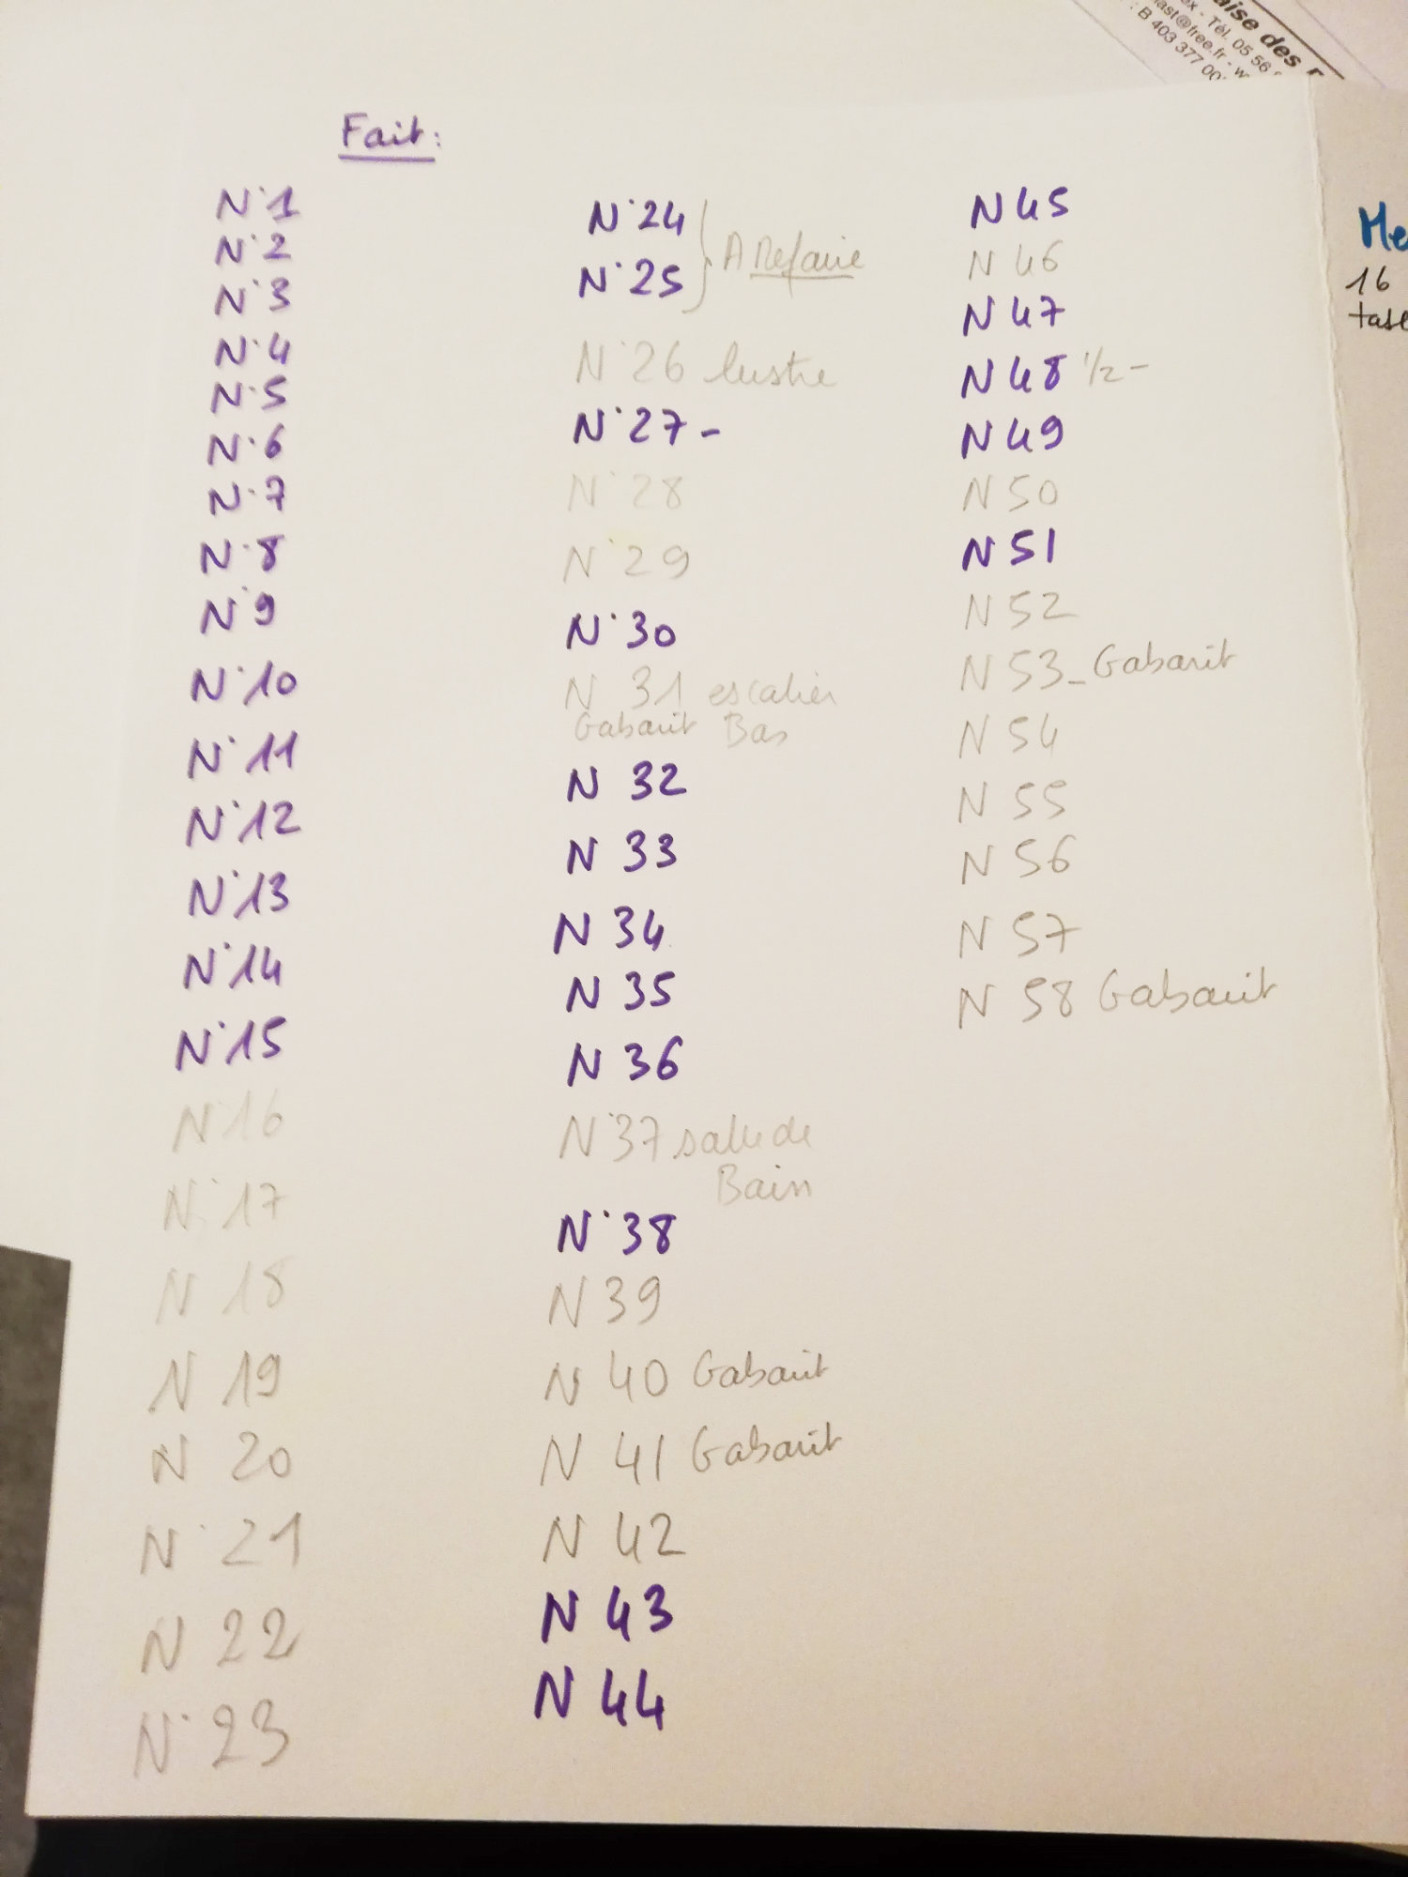 aise des
ex - Tél. 05 56
ast@free.fr - w
: B 403 377 00
Fait:
N°1
N°2
N°3
N°4
N°5
N°6
N°7
N°8
N°9
N°10
N°11
N°12
N°13
N°14
N°15
N 16
N° 17
N 18
N 19
N 20
N° 21
N 22
N° 23
N°24
N°25
A Refaire
N°26 lustre
N°27 -
N°28
N°29
N°30
N 31 escalier
Gabarit Bas
N 32
N 33
N 34
N 35
N 36
N°37 salle de
Bain
N°38
N 39
N 40 Gabarit
N 41 Gabarit
N 42
N 43
N 44
N 45
N 46
N 47
N 48 1/2 -
N 49
N 50
N 51
N 52
N 53 - Gabarit
N 54
N 55
N 56
N 57
N 58 Gabarit
Me
16